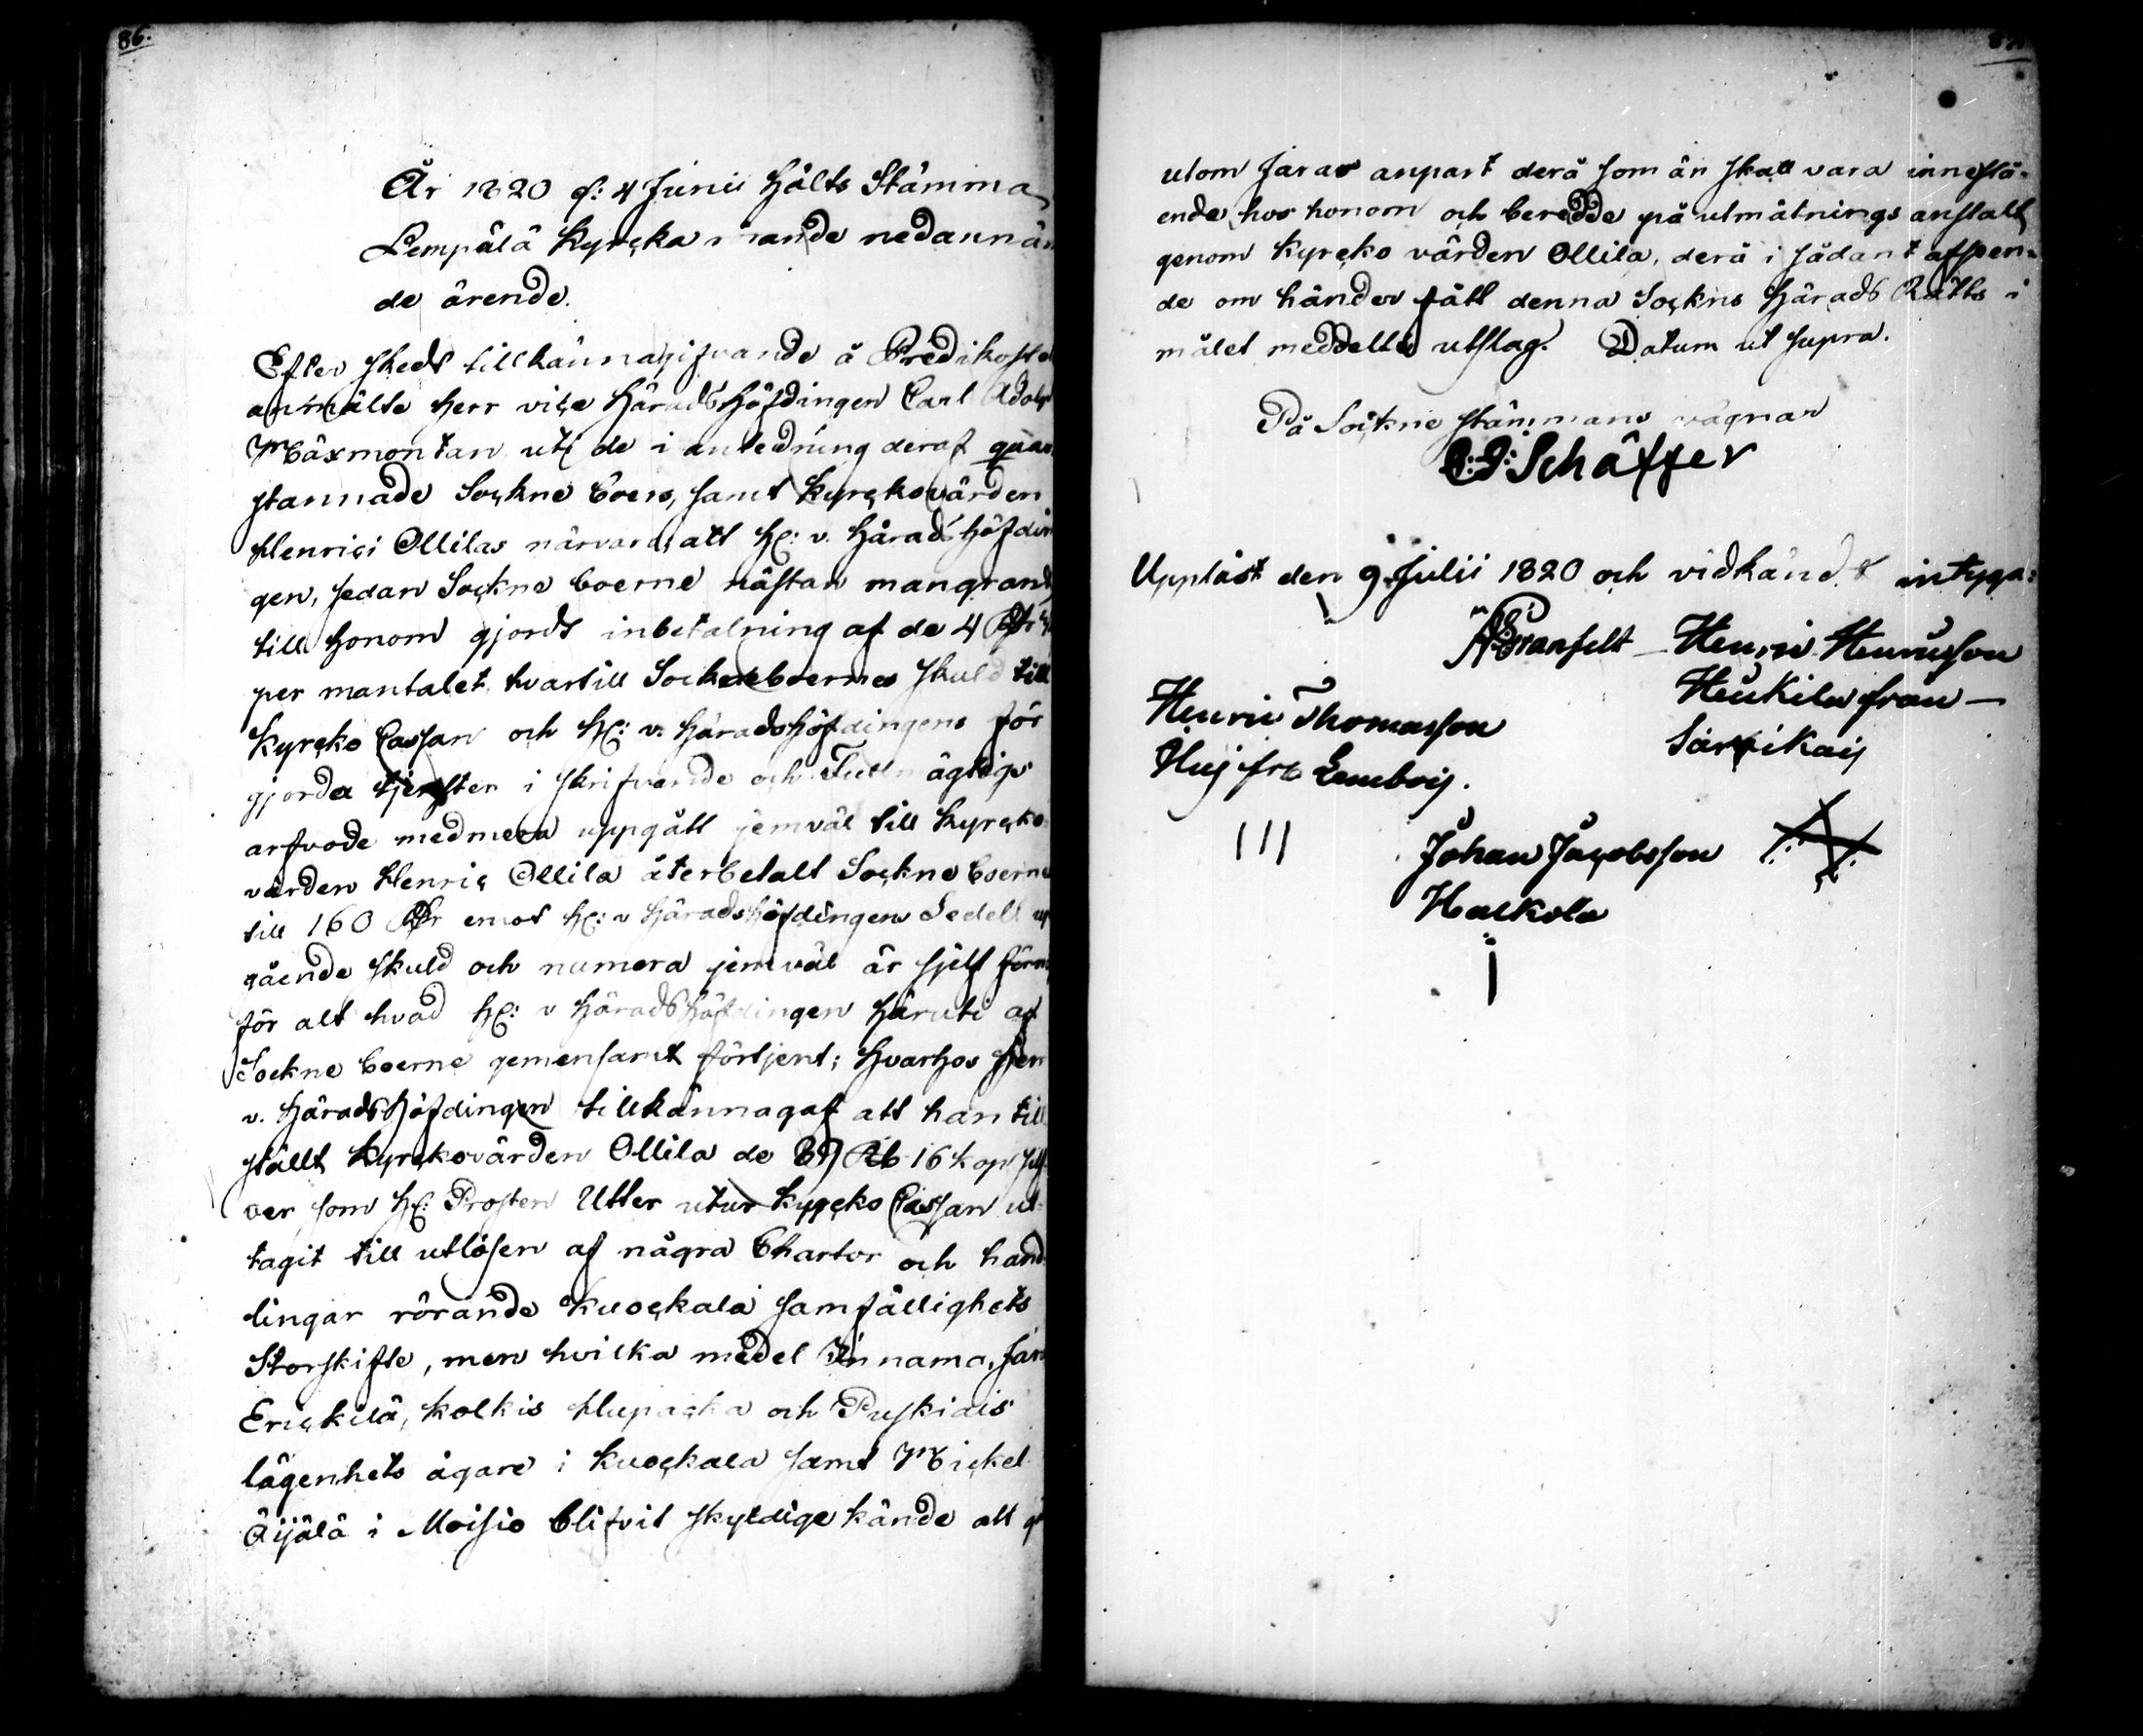 86.
År 1820 d: 4 Junii hölts Stämma
Lempälä Kyrcka rörande nedannän
de ärende.
Efter skedt tillkännagifvande å Predikosto
anmälte Herr vice Häradshöfdingen Carl Adolp
Mäxmontan uti de i anledning deraf qvar
stannade Sockne boers, samt Kyrckovärden
Henrici Ollilas närvaro, att H: v. Häradshöfdin
gen, sedan Sockne boerne nästan mangrant
till honom gjordt inbetalning af de 4 Rdr
per mantalet hvartill Sockneboernes skuld till
Kyrcko Cassan och H: v. Häradshöfdingens för
gjorda tjenster i skrifvande och Fullmägtigs
arfvode medmera uppgått jemväl till Kyrcko
värden Henric Ollila återbetalt Sockne boerne
till 160 Rdr emot H: v Häradshöfdingens Sedell up
gående skuld och numera jemväl är sjelf förnögd
för alt hvad H: v Häradshöfdingen häruti af
Sockne boerne gemensamt förtjent; hvarhos Herr
v. Häradshöfdingen tillkännagaf att han till
stält Kyrckovärden Ollila de Rb 16 kop silf
ver som H: Prosten Utter utur Kyrcko Cassan ut-
tagit till utlösen af några Chartor och hand
lingar rörande Kuockala samfällighets
Storskifte, men hvilka medel Innama, Jara
Erickilä, Kolkis Hupacka och Puskiais
lägenhets ägare i Kuockala samt Mickel
Äijälä i Moisio blifvit skyldige kände att
utom Jaras anpart derå som än skall vara innestå-
ende hos honom och beredde på utmätnings anstalt
genom Kyrcko värden Ollila, derå i sådant afseen-
de om händer fått denna Sockns Härads Rätts i
målet meddelte utslag. Datum ut supra.
På Sockne stämmans vägnar
C: J: Schäffer
Uppläst den 9 Julii 1820 och vidkändt intyga:
A Granfelt Henric Henricsson
Heikilä från —
Särikais
Henric Thomasson
Huj frå Lembois.
III
Johan Jacobsson
Halkola
I